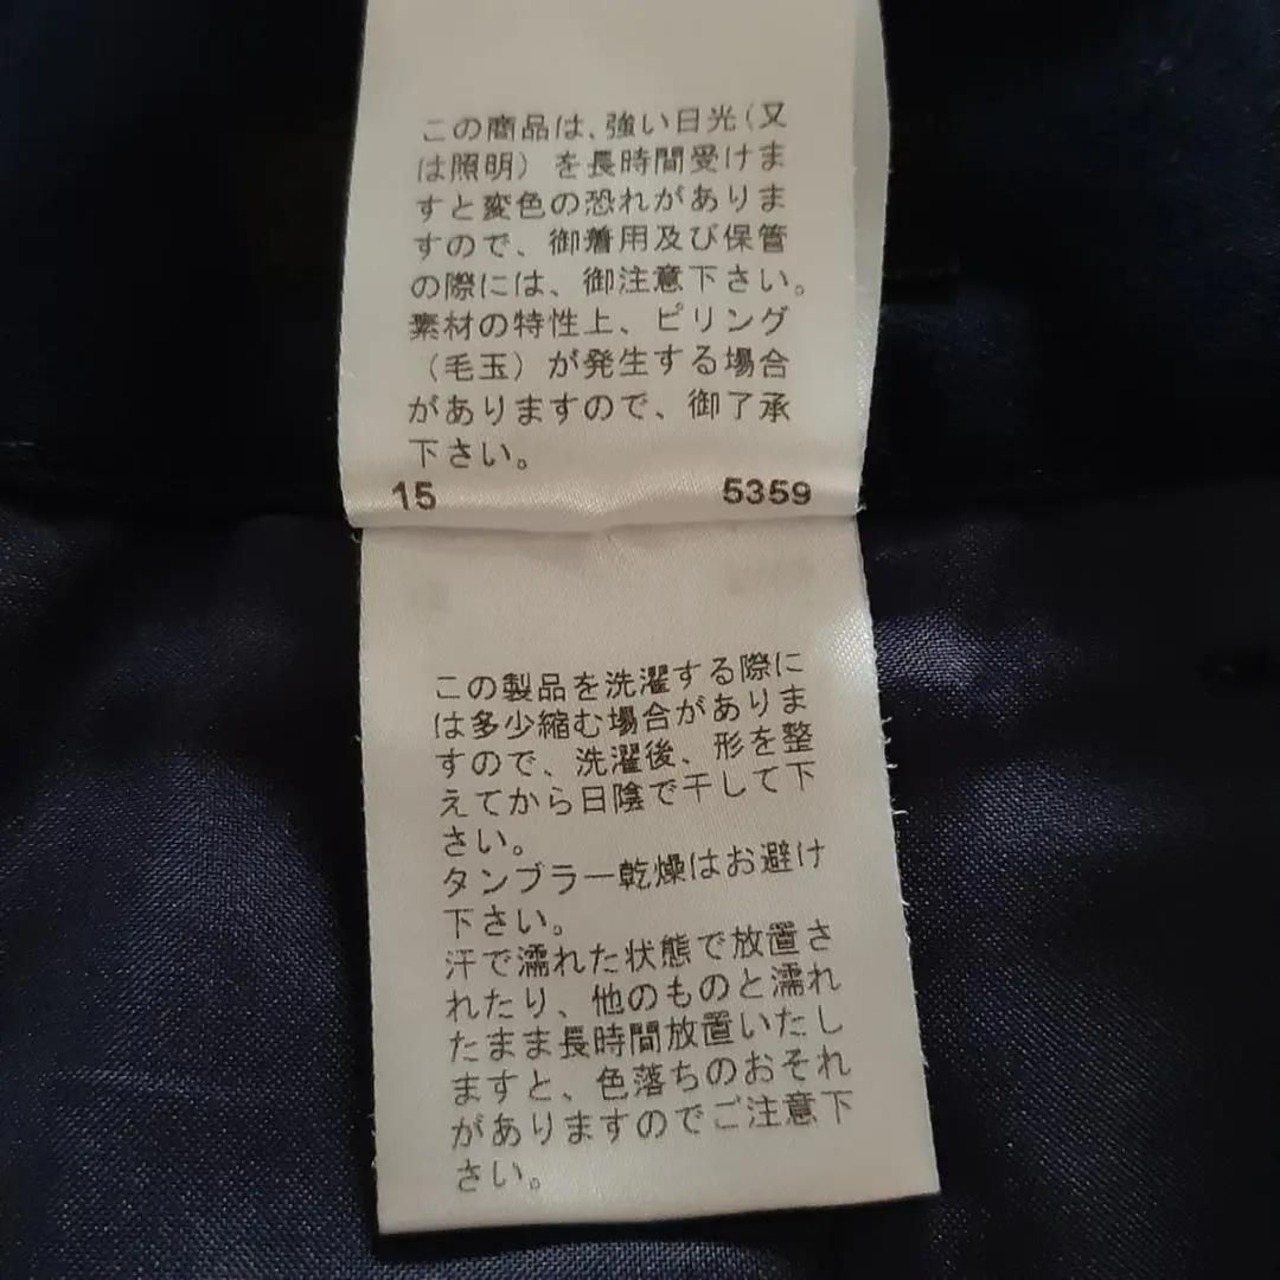 この商品は、強い日光(又
は照明）を長時間受けま
すと変色の恐れがありま
すので、御着用及び保管
の際には、御注意下さい。
素材の特性上、ピリング
（毛玉）が発生する場合
がありますので、御了承
下さい。
15 5359
この製品を洗濯する際に
は多少縮む場合がありま
すので、洗濯後、形を整
えてから日陰で干して下
さい。
タンブラー乾燥はお避け
下さい。
汗で濡れた状態で放置さ
れたり、他のものと濡れ
たまま長時間放置いたし
ますと、色落ちのおそれ
がありますのでご注意下
さい。